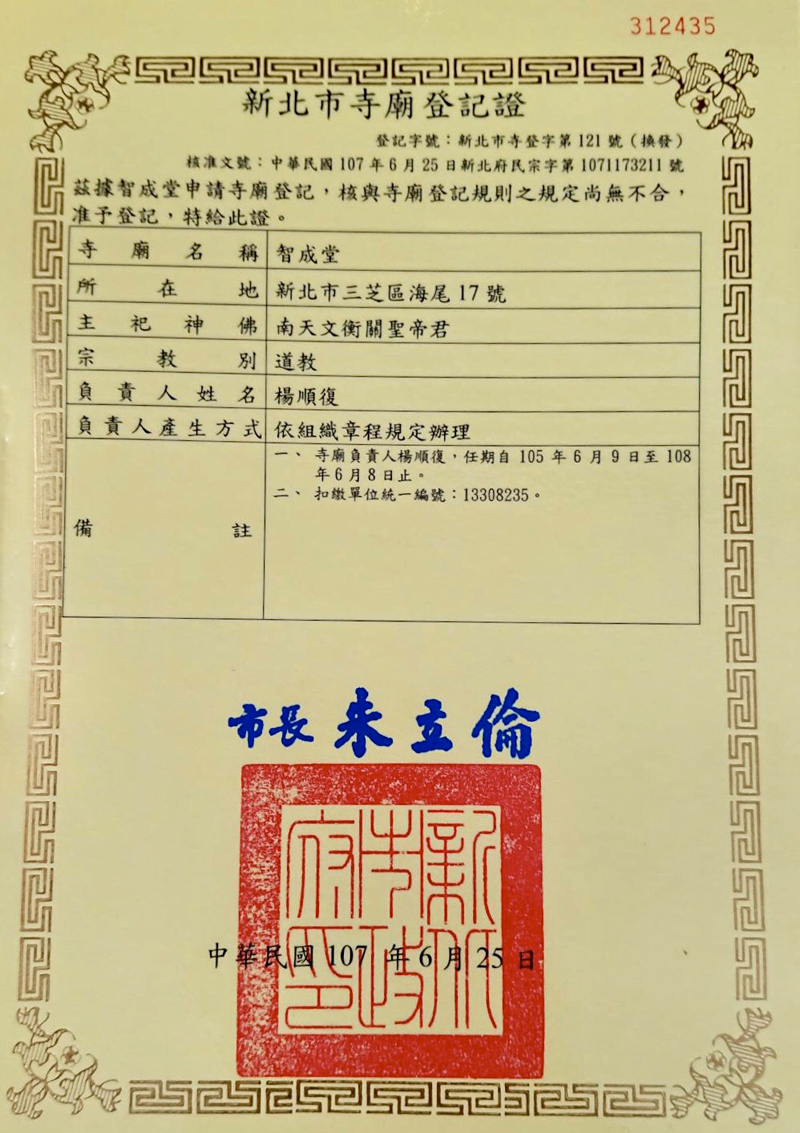 312435
新北市寺廟登記證
登記字號：新北市寺登字第 121 號（換發）
核准文號：中華民國 107 年 6 月 25 日新北府民宗字第 1071173211 號
茲據智成堂申請寺廟登記，核與寺廟登記規則之規定尚無不合，
准予登記，特給此證。
寺廟名稱 智成堂
所在地 新北市三芝區海尾 17 號
主祀神佛 南天文衡關聖帝君
宗教別 道教
負責人姓名 楊順復
負責人產生方式 依組織章程規定辦理
備註 一、寺廟負責人楊順復，任期自 105 年 6 月 9 日至 108
年 6 月 8 日止。
二、扣繳單位統一編號：13308235。
市長 朱立倫
新北市政府印
中華民國 107 年 6 月 25 日